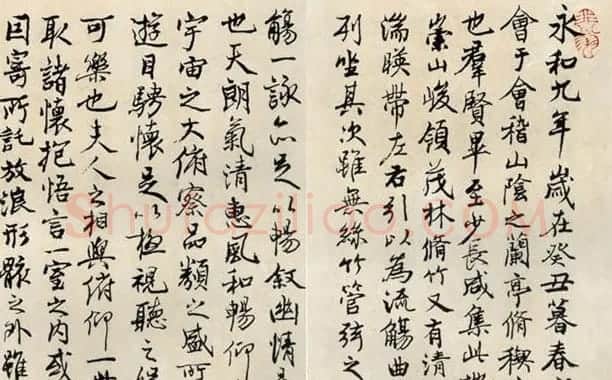 永和九年歲在癸丑暮春
會于會稽山陰之蘭亭脩禊
也羣賢畢至少長咸集此
崇山峻領茂林脩竹又有清
湍暎帶左右引以為流觴曲
列坐其次雖無絲竹管弦之
觴一詠亦足以暢敘幽情
也天朗氣清惠風和暢仰
宇宙之大俯察品類之盛所
遊目騁懷足以極視聽之
可樂也夫人之相與俯仰一
取諸懷抱悟言一室之內或
因寄所託放浪形骸之外雖
Shufaziliao.COM